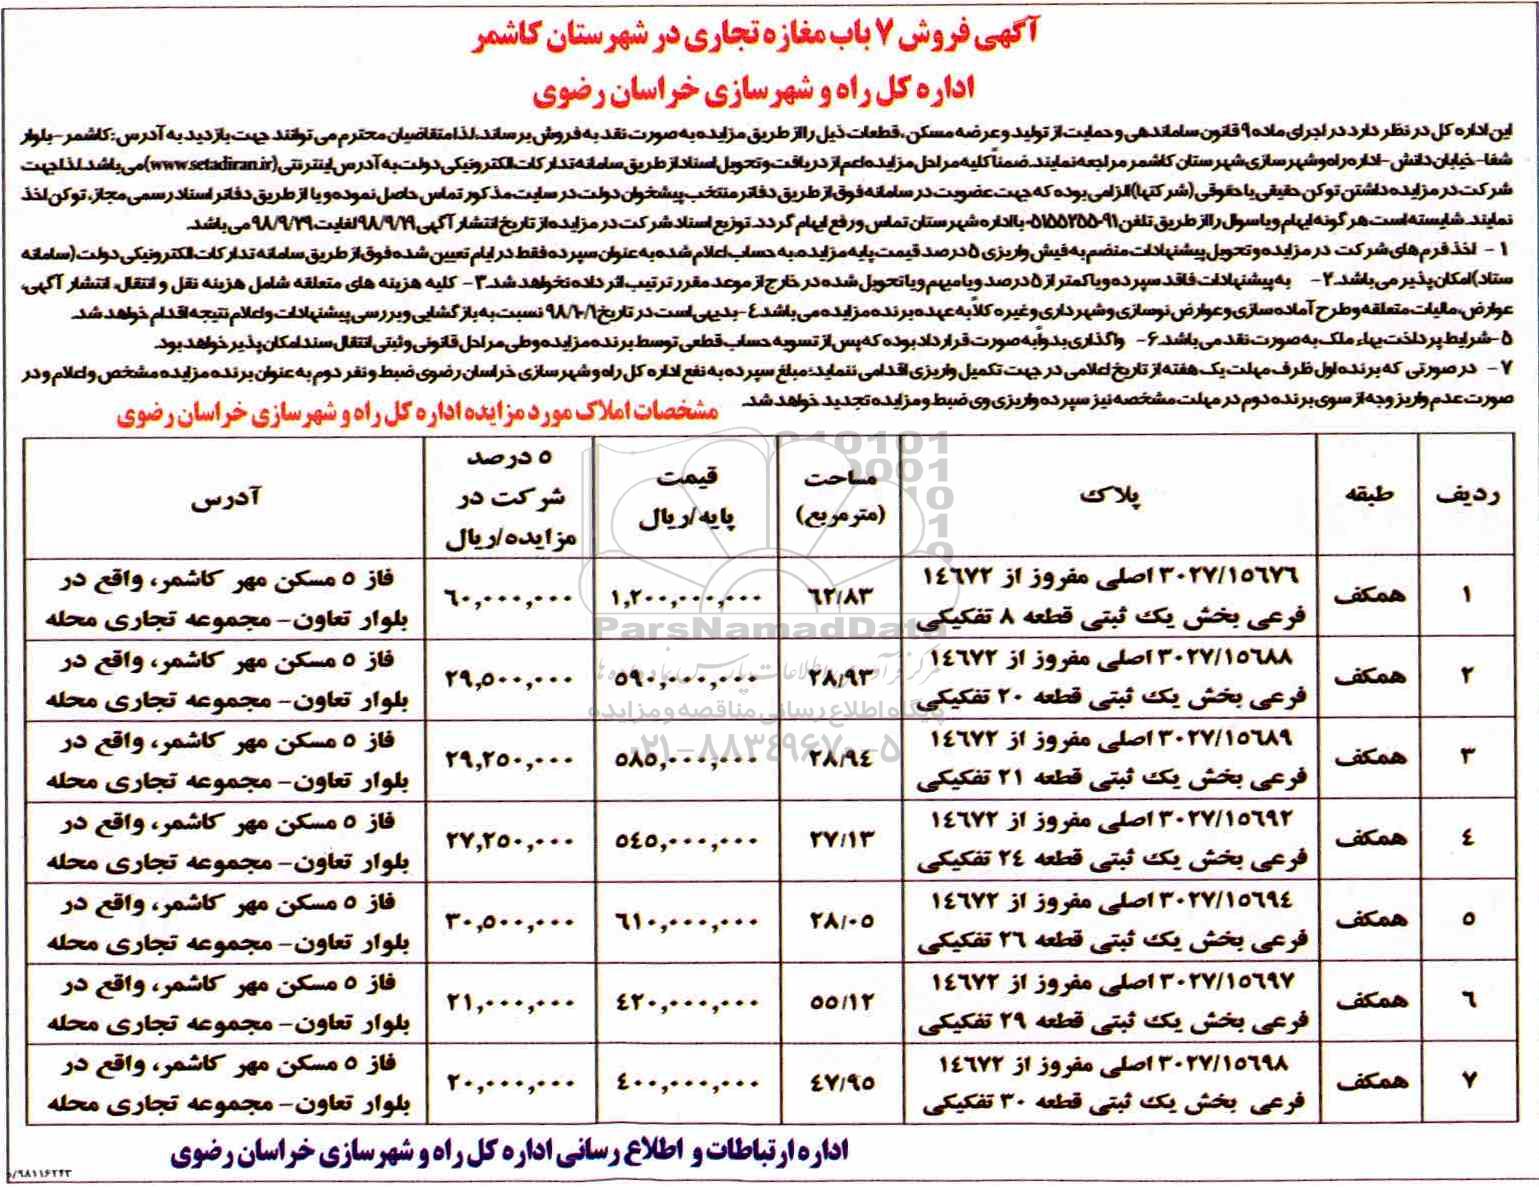 آگهی فروش ۷ باب مغازه تجاری در شهرستان کاشمر
اداره کل راه و شهرسازی خراسان رضوی
این اداره کل در نظر دارد در اجرای ماده ۹ قانون ساماندهی و حمایت از تولید و عرضه مسکن ، قطعات ذیل را از طریق مزایده به صورت نقد به فروش برساند، لذا متقاضیان محترم می توانند جهت بازدید به آدرس : کاشمر - بلوار
شفا- خیابان دانش - اداره راه و شهرسازی شهرستان کاشمر مراجعه نمایند. ضمناً کلیه مراحل مزایده اعم از دریافت و تحویل اسناد از طریق سامانه تدارکات الکترونیکی دولت به آدرس اینترنتی (www.setadiran.ir) می باشد. لذا جهت
شرکت در مزایده داشتن توکن حقیقی یا حقوقی (شرکتها) الزامی بوده که جهت عضویت در سامانه فوق از طریق دفاتر منتخب پیشخوان دولت در سایت مذکور تماس حاصل نموده و یا از طریق دفاتر اسناد رسمی مجاز، توکن اخذ
نمایند. شایسته است هر گونه ابهام و یا سوال را از طریق تلفن ۹۱-۰۵۱۵۵۲۵۵ با اداره شهرستان تماس و رفع ابهام گردد. توزیع اسناد شرکت در مزایده از تاریخ انتشار آگهی ۹۸/۹/۱۹ لغایت ۹۸/۹/۲۹ می باشد.
۱ - اخذ فرم های شرکت در مزایده و تحویل پیشنهادات منضم به فیش واریزی ۵ درصد قیمت پایه مزایده به حساب اعلام شده به عنوان سپرده فقط در ایام تعیین شده فوق از طریق سامانه تدارکات الکترونیکی دولت (سامانه
ستاد) امکان پذیر می باشد. ۲- به پیشنهادات فاقد سپرده و یا کمتر از ۵ درصد و یا مبهم و یا تحویل شده در خارج از موعد مقرر ترتیب اثر داده نخواهد شد. ۳- کلیه هزینه های متعلقه شامل هزینه نقل و انتقال، انتشار آگهی،
عوارض، مالیات متعلقه و طرح آماده سازی و عوارض نوسازی و شهرداری و غیره کلاً به عهده برنده مزایده می باشد ٤- بدیهی است در تاریخ ۹۸/۱۰/۱ نسبت به بازگشایی و بررسی پیشنهادات و اعلام نتیجه اقدام خواهد شد.
۵- شرایط پرداخت بهاء ملک به صورت نقد می باشد. ۶- واگذاری بدواً به صورت قرارداد بوده که پس از تسویه حساب قطعی توسط برنده مزایده و طی مراحل قانونی و ثبتی انتقال سند امکان پذیر خواهد بود.
۷ - در صورتی که برنده اول ظرف مهلت یک هفته از تاریخ اعلامی در جهت تکمیل واریزی اقدامی ننماید؛ مبلغ سپرده به نفع اداره کل راه و شهرسازی خراسان رضوی ضبط و نفر دوم به عنوان برنده مزایده مشخص و اعلام و در
صورت عدم واریز وجه از سوی برنده دوم در مهلت مشخصه نیز سپرده واریزی وی ضبط و مزایده تجدید خواهد شد.
مشخصات املاک مورد مزایده اداره کل راه و شهرسازی خراسان رضوی
ردیف طبقه پلاک مساحت (مترمربع) قیمت پایه/ریال ٥ درصد شرکت در مزایده/ریال آدرس
۱ همکف ۳۰۲۷/۱٥٦۷٦ اصلی مفروز از ۱٤٦۷۲ فرعی بخش یک ثبتی قطعه ۸ تفکیکی ٦۲/۸۳ ۱,۲۰۰,۰۰۰,۰۰۰ ٦۰,۰۰۰,۰۰۰ فاز ٥ مسکن مهر کاشمر، واقع در بلوار تعاون- مجموعه تجاری محله
۲ همکف ۳۰۲۷/۱٥٦۸۸ اصلی مفروز از ۱٤٦۷۲ فرعی بخش یک ثبتی قطعه ۲۰ تفکیکی ۲۸/۹۳ ٥۹۰,۰۰۰,۰۰۰ ۲۹,٥۰۰,۰۰۰ فاز ٥ مسکن مهر کاشمر، واقع در بلوار تعاون- مجموعه تجاری محله
۳ همکف ۳۰۲۷/۱٥٦۸۹ اصلی مفروز از ۱٤٦۷۲ فرعی بخش یک ثبتی قطعه ۲۱ تفکیکی ۲۸/۹٤ ٥۸٥,۰۰۰,۰۰۰ ۲۹,۲٥۰,۰۰۰ فاز ٥ مسکن مهر کاشمر، واقع در بلوار تعاون- مجموعه تجاری محله
٤ همکف ۳۰۲۷/۱٥٦۹۲ اصلی مفروز از ۱٤٦۷۲ فرعی بخش یک ثبتی قطعه ۲٤ تفکیکی ۲۷/۱۳ ٥٤٥,۰۰۰,۰۰۰ ۲۷,۲٥۰,۰۰۰ فاز ٥ مسکن مهر کاشمر، واقع در بلوار تعاون- مجموعه تجاری محله
٥ همکف ۳۰۲۷/۱٥٦۹٤ اصلی مفروز از ۱٤٦۷۲ فرعی بخش یک ثبتی قطعه ۲٦ تفکیکی ۲۸/۰٥ ٦۱۰,۰۰۰,۰۰۰ ۳۰,٥۰۰,۰۰۰ فاز ٥ مسکن مهر کاشمر، واقع در بلوار تعاون- مجموعه تجاری محله
٦ همکف ۳۰۲۷/۱٥٦۹۷ اصلی مفروز از ۱٤٦۷۲ فرعی بخش یک ثبتی قطعه ۲۹ تفکیکی ٥٥/۱۲ ٤۲۰,۰۰۰,۰۰۰ ۲۱,۰۰۰,۰۰۰ فاز ٥ مسکن مهر کاشمر، واقع در بلوار تعاون- مجموعه تجاری محله
۷ همکف ۳۰۲۷/۱٥٦۹۸ اصلی مفروز از ۱٤٦۷۲ فرعی بخش یک ثبتی قطعه ۳۰ تفکیکی ٤۷/۹٥ ٤۰۰,۰۰۰,۰۰۰ ۲۰,۰۰۰,۰۰۰ فاز ٥ مسکن مهر کاشمر، واقع در بلوار تعاون- مجموعه تجاری محله
ParsNamadData
مرکز فرآوری اطلاعات پارس نماد داده ها
پایگاه اطلاع رسانی مناقصه و مزایده
۰۲۱-۸۸۳۴۹۶۷۰-۵
اداره ارتباطات و اطلاع رسانی اداره کل راه و شهرسازی خراسان رضوی
۹۸۱۱۶۲۴۳/م